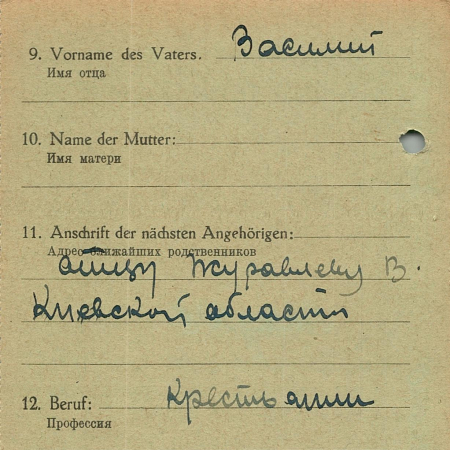 9. Vorname des Vaters. Василий
Имя отца
10. Name der Mutter:
Имя матери
11. Anschrift der nächsten Angehörigen:
Адрес ближайших родственников
отцу Журавлеву В.
Киевской области
12. Beruf: Крестьянин
Профессия